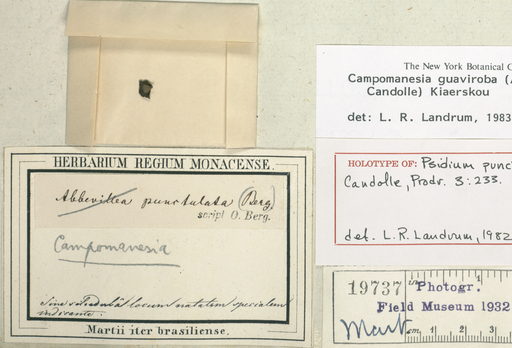 HERBARIUM REGIUM MONACENSE.
Abbevillea punctulata (Berg)
script O. Berg.
Campomanesia
Sine schedula locum natalem specialem
indicante.
Martii iter brasiliense.
The New York Botanical G
Campomanesia guaviroba (A
Candolle) Kiaerskou
det: L. R. Landrum, 1983
HOLOTYPE OF: Psidium punc
Candolle, Prodr. 3:233.
det. L.R. Landrum, 1982
19737 Photogr.
Field Museum 1932
Mart
cm 1 2 3